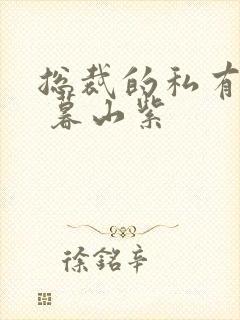 总裁的私有
暮山紫
徐铭辛